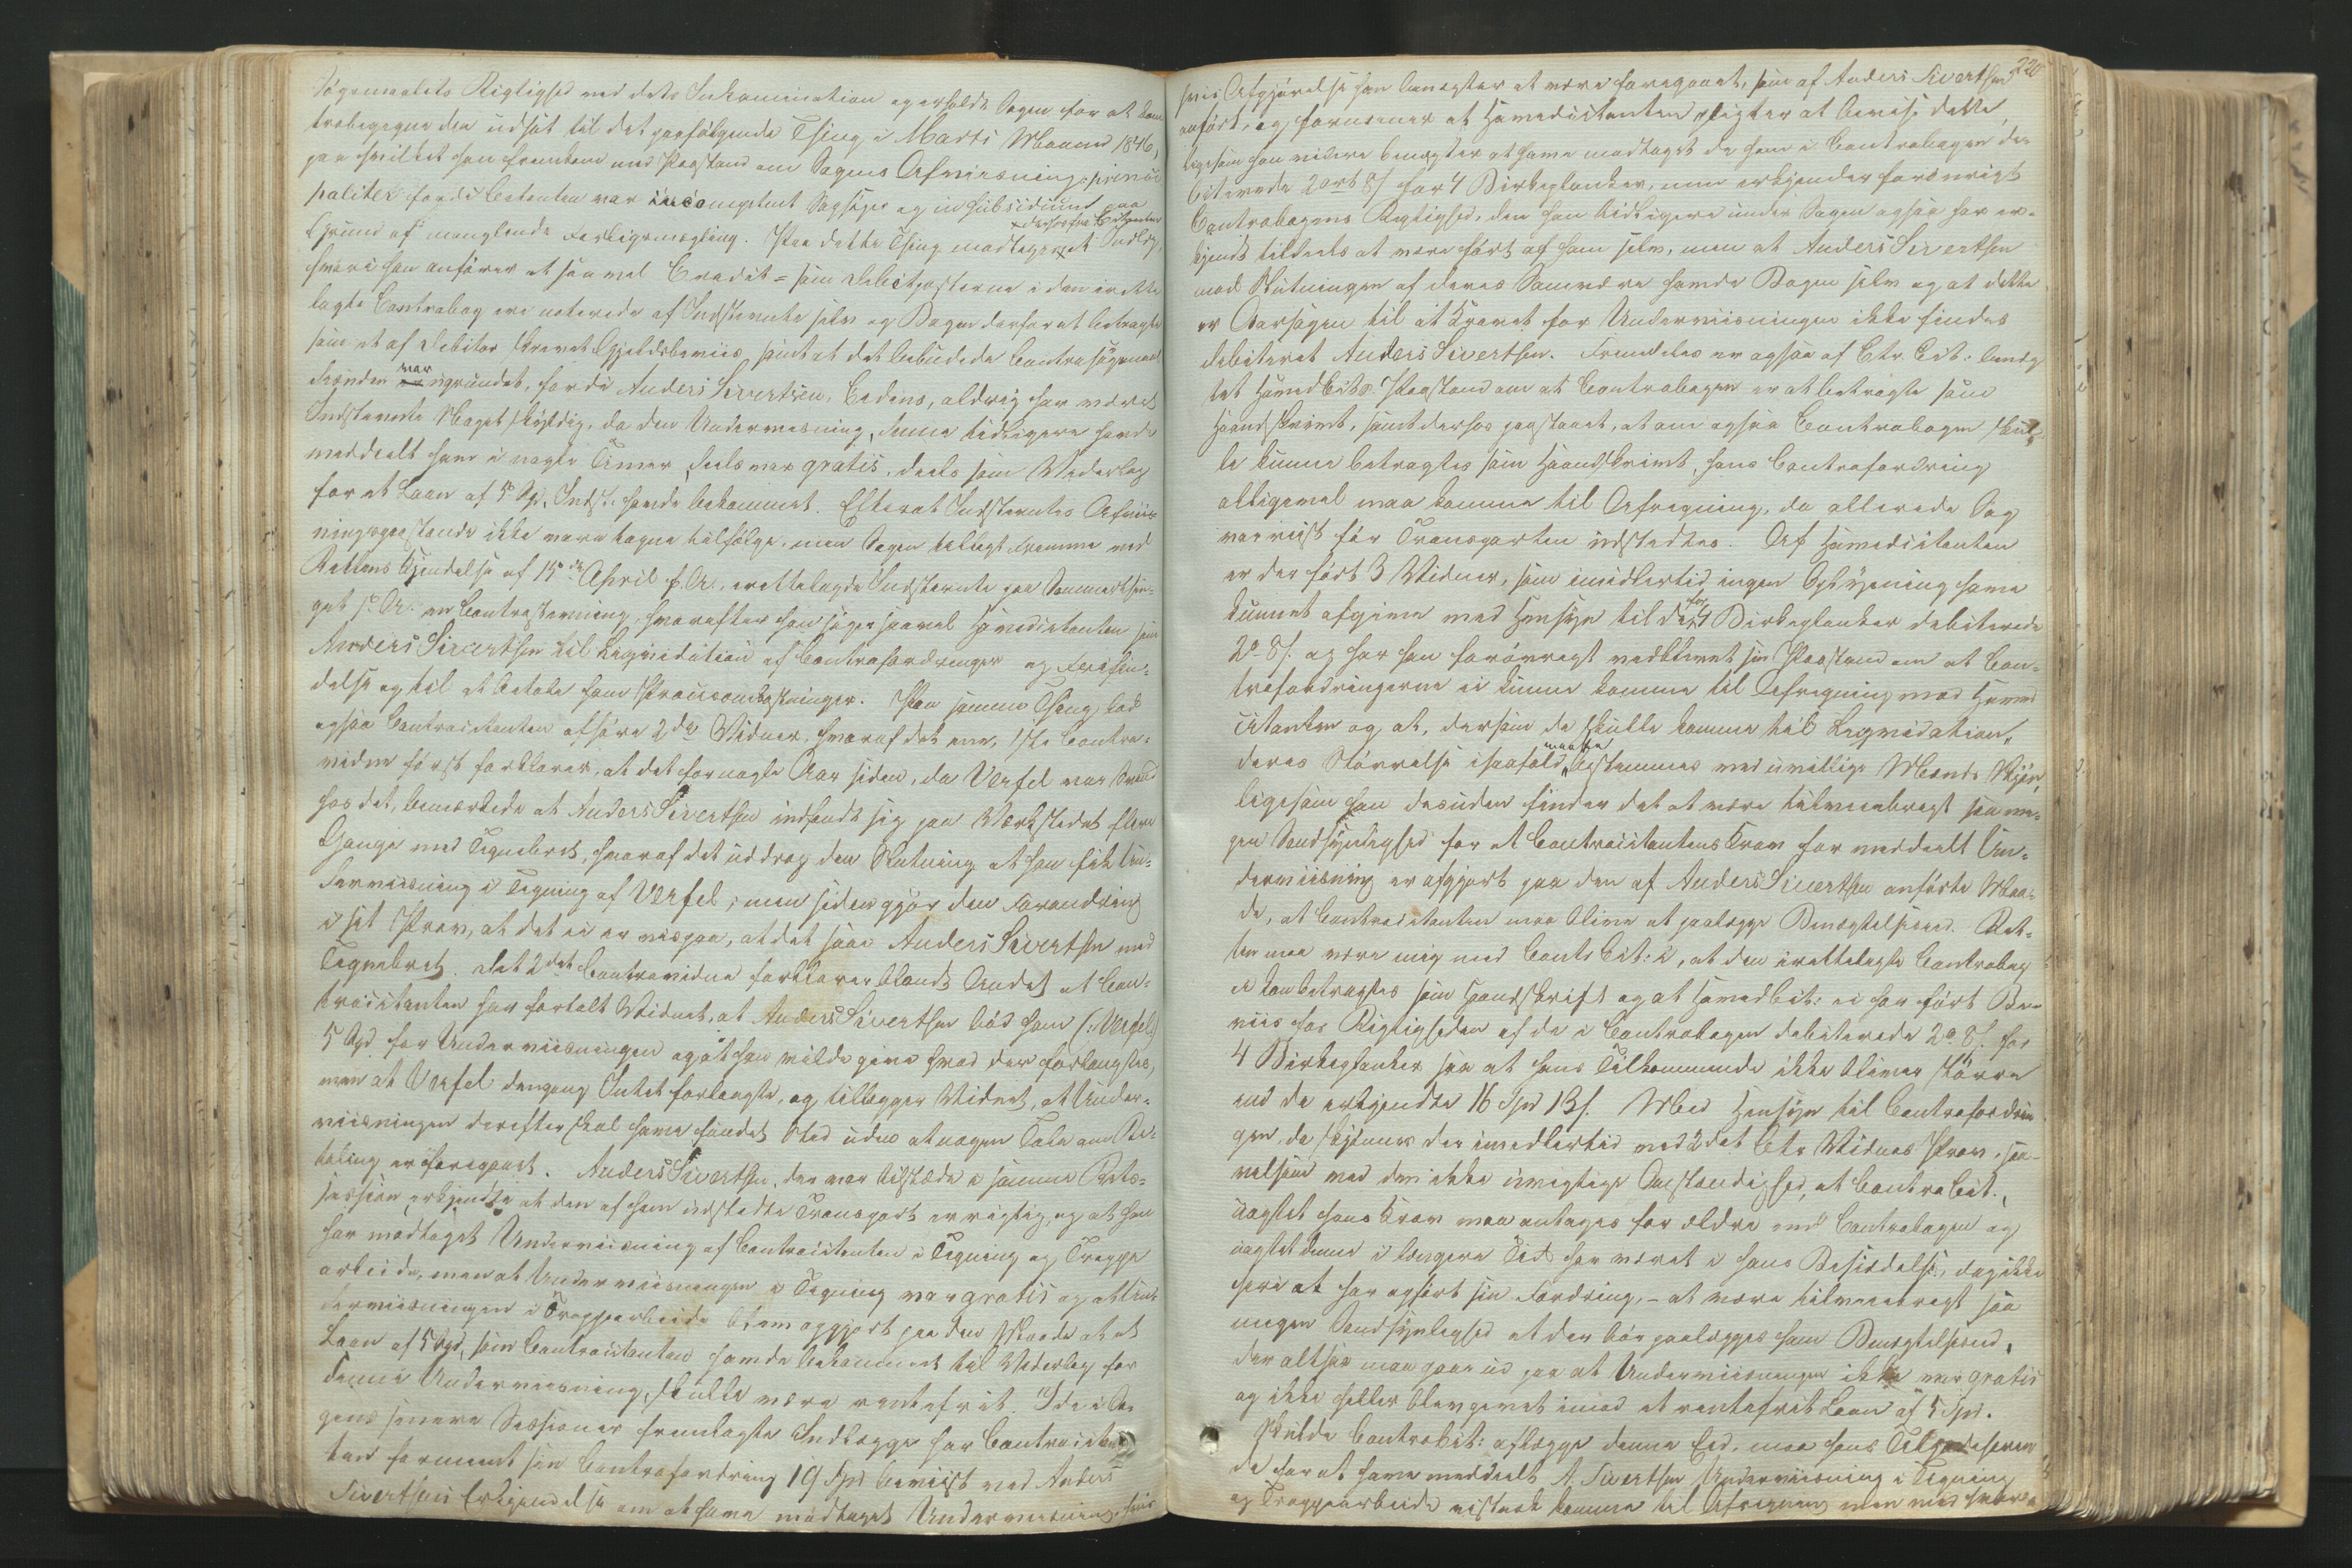 Søgsmaalets Rigtighed ved dets Inkamination og erholdt Sagen for at kon-
trabegegne den udsat til det paafølgende Thing i Marts Maaned 1846,
paa hvilket han fremkom med Paastand om Sagens Afviisning: princi
paliter fordi Citanten var incompetent Sagsøger og in subsidium paa
Grund af manglende Forligsmægling. Paa dette Thing modtoges et Indlæg,
derhos fra Citanten
hvori han anfører at saavel Credit- som Debetposterne i den irette
lagte Contrabog ere noterede af Indstevnte selv og Bogen derfor at betragte
som et af Debitor skrevet Gjeldsbeviis, samt at det bebudede Contrasøgsmaal
desuden var ugrundet, fordi Anders Sivertsen, Cedens, aldrig har været
Indstevnte Noget skyldig, da den Underviisning, denne tidligere havde
meddeelt ham i nogle Timer, deels var gratis, deels som Vederlag
for et Laan af 5 Spd, Indst. havde bekommet. Efterat Indstevntes Afviis
ningspaastande ikke vare tagne tilfølge, men Sagen tillagt Fremme ved
Rettens Kjendelse af 15de April f. A., irettelagde Indstevnte paa Sommerthin-
get s. A. en Contrastevning, hvorefter han søger saavel Hovedcitanten som
Anders Sivertsen til Liqvidation af Contrafordringer og Frifin-
delse og til at betale ham Procesomkostninger. Paa samme Thing lod
ogsaa Contracitanten afhøre 2de Vidner, hvoraf det ene, 1ste Contra-
vidne først forklarer, at det for nogle Aar siden, da Verfel var Svend
hos det, bemærkede at Anders Sivertsen indfandt sig paa Værkstedet flere
Gange med Tegnebret, hvoraf det uddrog den Slutning at han fik Un-
derviisning i Tegning af Verfel; men siden gjør den Forandring
i sit Prov, at det ei er vis paa, at det saae Anders Sivertsen med
Tegnebret. Det 2det Contravidne forklarer blandt Andet at Con-
tracitanten har fortalt Vidnet, at Anders Sivertsen bød ham (: Verfel)
5 Spd for Underviisningen og at han vilde give hvad der forlangtes,
men at Verfel dengang Intet forlangte, og tillægger Vidnet, at Under-
viisningen derefter skal have fundet Sted uden at nogen Tale om Be-
taling er foregaaet. Anders Sivertsen, der var tilstede i samme Rets-
session erkjendte at den af ham udstedte Transport er rigtig, og at han
har modtaget Underviisning af Contracitanten i Tegning og Trappe
arbeide, men at Underviisningen i Tegning var gratis og at Un-
derviisningen i Trappearbeide blev opgjort paa den Maade at et
Laan af 5 Spd, som Contracitanten havde bekommet til Vederlag for
denne Underviisning, skulde være rentefrit. I de i Sa
gens senere Sessioner fremlagte Indlægge har Contracitan
ten formeent sin Contrafordring 19 Spd beviist ved Anders
Sivertsens Erkjendelse om at have modtaget Underviisning, hvis
220
hvis Afgjørelse han benægter at være foregaaet, som af Anders Sivertsen
anført, og formener at Hovedcitanten pligter at bevise dette,
ligesom han videre benægter at have modtaget de ham i Contrabogen de-
biterede 2 ort 8 s for 4 Birkeplanker, men erkjender forøvrigt
Contrabogens Rigtighed, den han tidligere under Sagen ogsaa har er-
kjendt tildeels at være ført af ham selv, men at Anders Sivertsen
mod Slutningen af deres Samvære havde Bogen selv og at dette
er Aarsagen til at Kravet for Underviisningen ikke findes
debiteret Anders Sivertsen. Fremdeles er ogsaa af Ctr. Cit. benæg
tet Hovedcits. Paastand om at Contrabogen er at betragte som
Haandskrivt, samt derhos paastaaet, at om ogsaa Contrabogen skul-
de kunne betragtes som Haandskrivt, hans Contrafordring
alligevel maa komme til Afregning, da allerede Sag
var reist før Transporten udstedtes. Af Hovedcitanten
er der ført 3 Vidner, som imidlertid ingen Oplysning have
kunnet afgive med Hensyn til de for 4 Birkeplanker debiterede
2 ort 8 s. og har han forøvrigt vedblevet sin Paastand om at Con-
trafordringerne ei kunne komme til Afregning mod Hoved
citanten og at, dersom de skulle komme til Liqvidation,
deres Størrelse isaafald maatte bestemmes ved uvillige Mænds Skjøn,
ligesom han desuden finder det at være tilveiebragt saa me-
gen Sandsynlighed for at Contracitantens Krav for meddeelt Un-
derviisning er afgjort paa den af Anders Sivertsen anførte Maa-
de, at Contracitanten maa blive at paalægge Benægtelseseed. Ret-
ten maa være enig med Contr Cit: i, at den irettelagte Contrabog
ei kan betragtes som Haandskrift og at Hovedcit: ei har ført Be-
viis for Rigtigheden af de i Contrabogen debiterede 2 o 8 s. for
4 Birkeplanker saa at hans Tilkommende ikke bliver større
end de erkjendte 16 Spd 13 s. Med Hensyn til Contrafordrin
gen, da skjønnes der imidlertid ved 2det Ctr Vidnes Prov, saa-
velsom ved den ikke uvigtige Omstændighed, at Contra Cit.,
uagtet hans Krav maa antages for ældre end Contrabogen og
uagtet denne i længere Tid har været i hans Besiddelse, dog ikke
heri at har opført sin Fordring, – at være tilveiebragt saa
megen Sandsynlighed at der bør paalægges ham Benægtelseseed,
der altsaa maa gaae ud paa at Underviisningen ikke var gratis
og ikke heller bleven givet imod et rentefrit Laan af 5 Spd.
Skulde Contracit: aflægge denne Eed, maa hans Tilgodehaven
de for at have meddeelt A. Sivertsen Underviisning i Tegning
og Trappearbeide vistnok komme til Afregning men